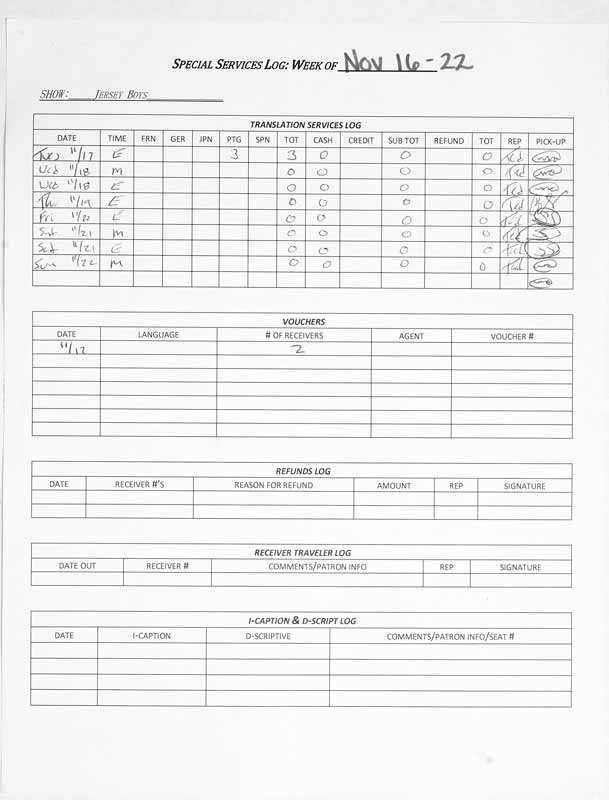 SPECIAL SERVICES LOG: WEEK OF Nov 16-22
SHOW: JERSEY BOYS
TRANSLATION SERVICES LOG
DATE TIME FRN GER JPN PTG SPN TOT CASH CREDIT SUB TOT REFUND TOT REP PICK-UP
Tues 11/17 E 3 3 0 0 0 Ted
Wed 11/18 M 0 0 0 0 Ted
Wed 11/18 E 0 0 0 0 Ted
Thu 11/19 E 0 0 0 0 Ted
Fri 11/20 E 0 0 0 0 Ted
Sat 11/21 M 0 0 0 0 Ted
Sat 11/21 E 0 0 0 0 Ted
Sun 11/22 M 0 0 0 0 Ted
VOUCHERS
DATE LANGUAGE # OF RECEIVERS AGENT VOUCHER #
11/17 2
REFUNDS LOG
DATE RECEIVER #'S REASON FOR REFUND AMOUNT REP SIGNATURE
RECEIVER TRAVELER LOG
DATE OUT RECEIVER # COMMENTS/PATRON INFO REP SIGNATURE
I-CAPTION & D-SCRIPT LOG
DATE I-CAPTION D-SCRIPTIVE COMMENTS/PATRON INFO/SEAT #